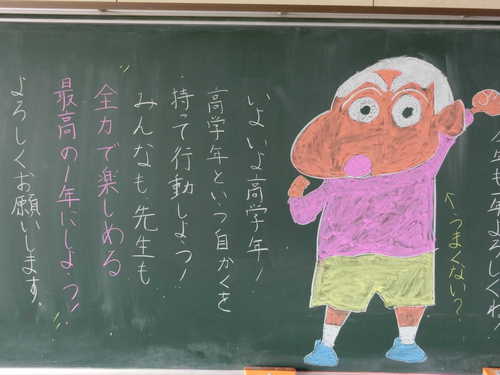 今年もよろしくね
←うまくない?
いよいよ高学年!
高学年といつ自かくを
持って行動しよう!
みんなも先生も
全力で楽しめる
最高の1年にしよう!
よろしくお願いします。